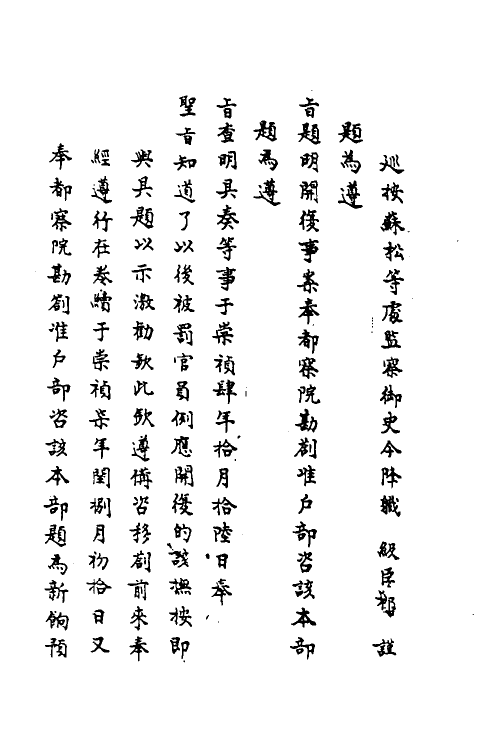 巡按蘇松等處監察御史今降職 級臣祁 謹
題為遵
旨題明開復事案奉都察院勘劄准户部咨該本部
題為遵
旨查明具奏等事于崇禎肆年拾月拾陸日奉
聖旨知道了以後被罰官員例應開復的該撫按即
與具題以示激勸欽此欽遵備咨移劄前來奉
經遵行在卷續于崇禎柒年閏捌月初拾日又
奉都察院勘劄准户部咨該本部題為新餉預